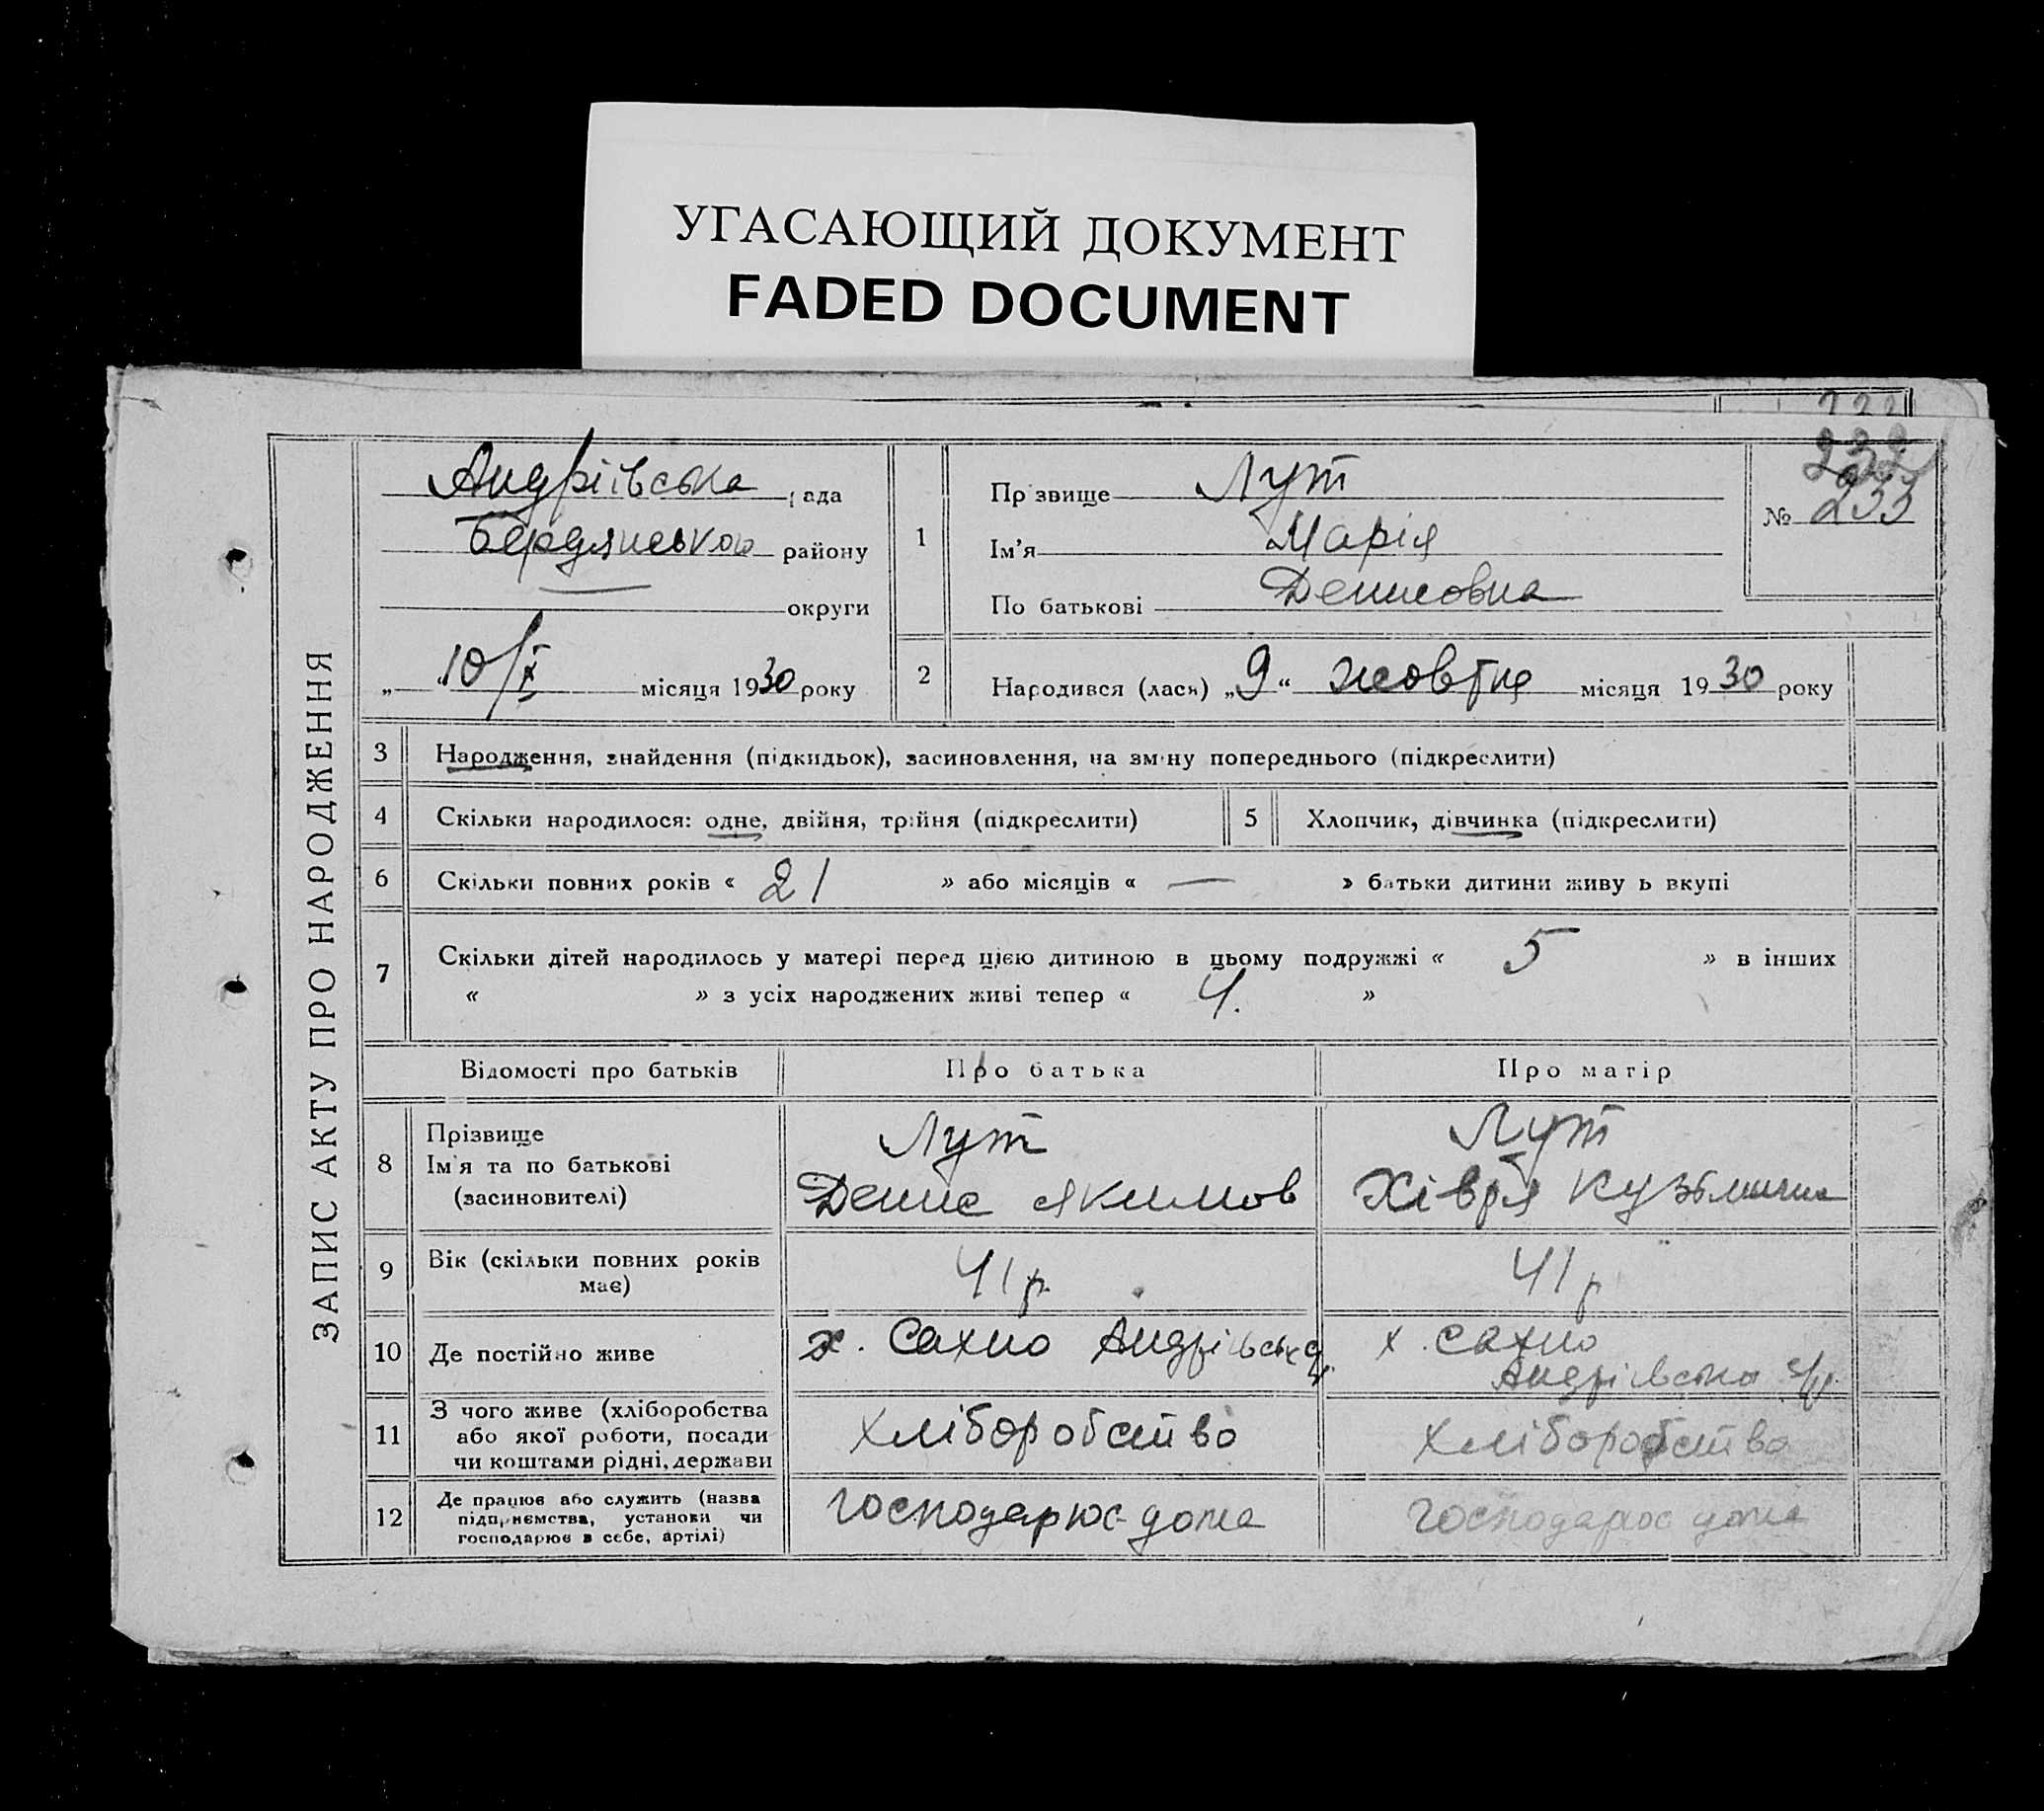 УГАСАЮЩИЙ ДОКУМЕНТ
FADED DOCUMENT
ЗАПИС АКТУ ПРО НАРОДЖЕННЯ
Андріївська рада
Бердянського району
— округи
„ 10/X місяця 1930 року
232
№ 233
1
Прізвище Лут
Ім'я Марія
По батькові Денисовна
2 Народився (лася) „9“ жовтня місяця 1930 року
3 Народження, знайдення (підкидьок), засиновлення, на зміну попереднього (підкреслити)
4 Скільки народилося: одне, двійня, трійня (підкреслити) 5 Хлопчик, дівчинка (підкреслити)
6 Скільки повних років « 21 » або місяців « — » батьки дитини живуть вкупі
7 Скільки дітей народилось у матері перед цією дитиною в цьому подружжі « 5 » в інших
« » з усіх народжених живі тепер « 4. »
Відомості про батьків Про батька Про матір
8 Прізвище
Ім'я та по батькові
(засиновителі)
Лут
Денис Якимов
Лут
Хівря Кузьминична
9 Вік (скільки повних років
має)
41 р.
41 р
10 Де постійно живе
х. Сахно Андріївська
х. Сахно
Андріївська с/р.
11 З чого живе (хліборобства
або якої роботи, посади
чи коштами рідні, держави
хліборобство
хліборобство
12 Де працює або служить (назва
підприємства, установи чи
господарює в себе, артілі)
господарює дома
господарює дома